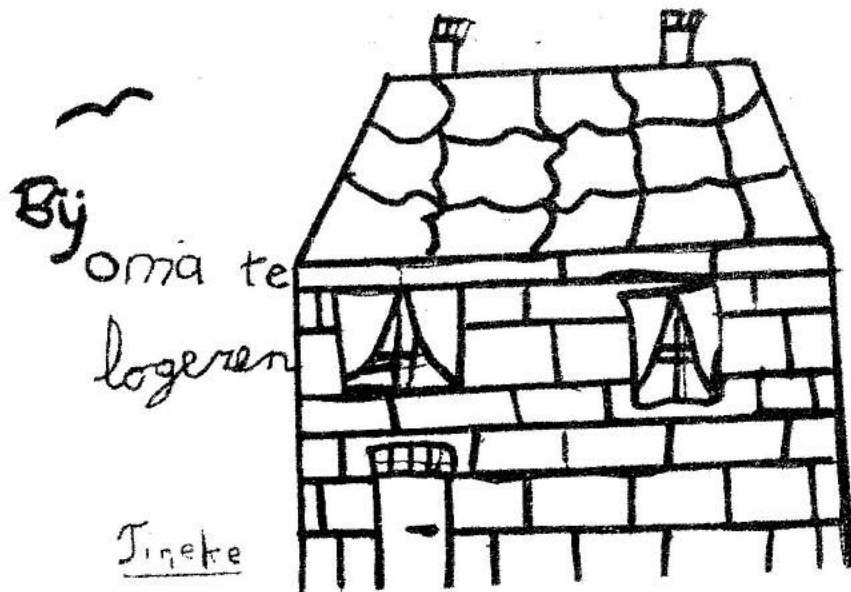 Bij
oma te
logeren
Tineke